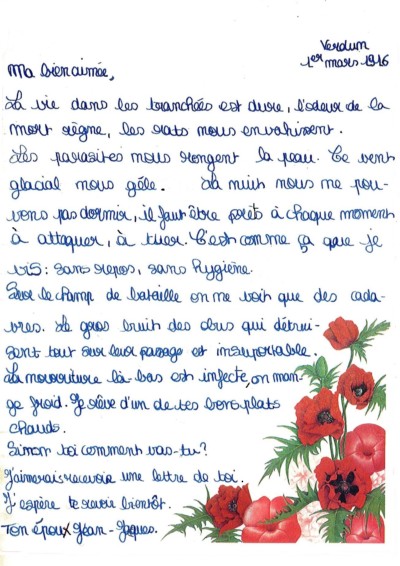 Verdun
1er mars 1916
Ma bien aimée,
La vie dans les tranchées est dure, l'odeur de la
mort règne, les rats nous envahissent.
Les parasites nous rongent la peau. Ce vent
glacial nous gèle. La nuit nous ne pou-
vons pas dormir, il faut être prêts à chaque moment
à attaquer, à tuer. C'est comme ça que je
vis : sans repos, sans hygiène.
Sur le champ de bataille on ne voit que des cada-
vres. Le gros bruit des obus qui détrui-
sent tout sur leur passage est insuportable.
La nourriture là-bas est infecte, on man-
ge froid. Je rêve d'un de tes bons plats
chauds.
Sinon toi comment vas-tu ?
J'aimerais recevoir une lettre de toi.
J'espère te revoir bientôt.
Ton époux Jean-Jaques.